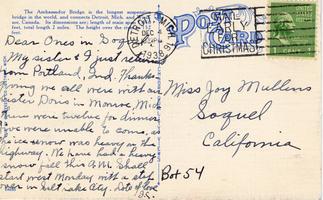 The Ambassador Bridge is the longest suspension
bridge in the world, and connects Detroit, Mich. and
Canada.
feet, total length 2 miles. The height over the
feet.
Dear Ones in Soquel
My sister & I just returned
from Portland, Ind. Thanks-
giving we all were with our
sister Doris in Monroe, Mich
there were twelve for dinner
five were unable to come, as
the ice snow was heavy on the
highway. We have had a heavy
snow fall this A.M. Shall
start west Monday with a stop
over in Salt Lake City. Lots of love
POST
CARD
DETROIT, MICH.
DEC
1938
MAIL
EARLY
FOR
CHRISTMAS
Miss Joy Mullins
Soquel
California
Box 54